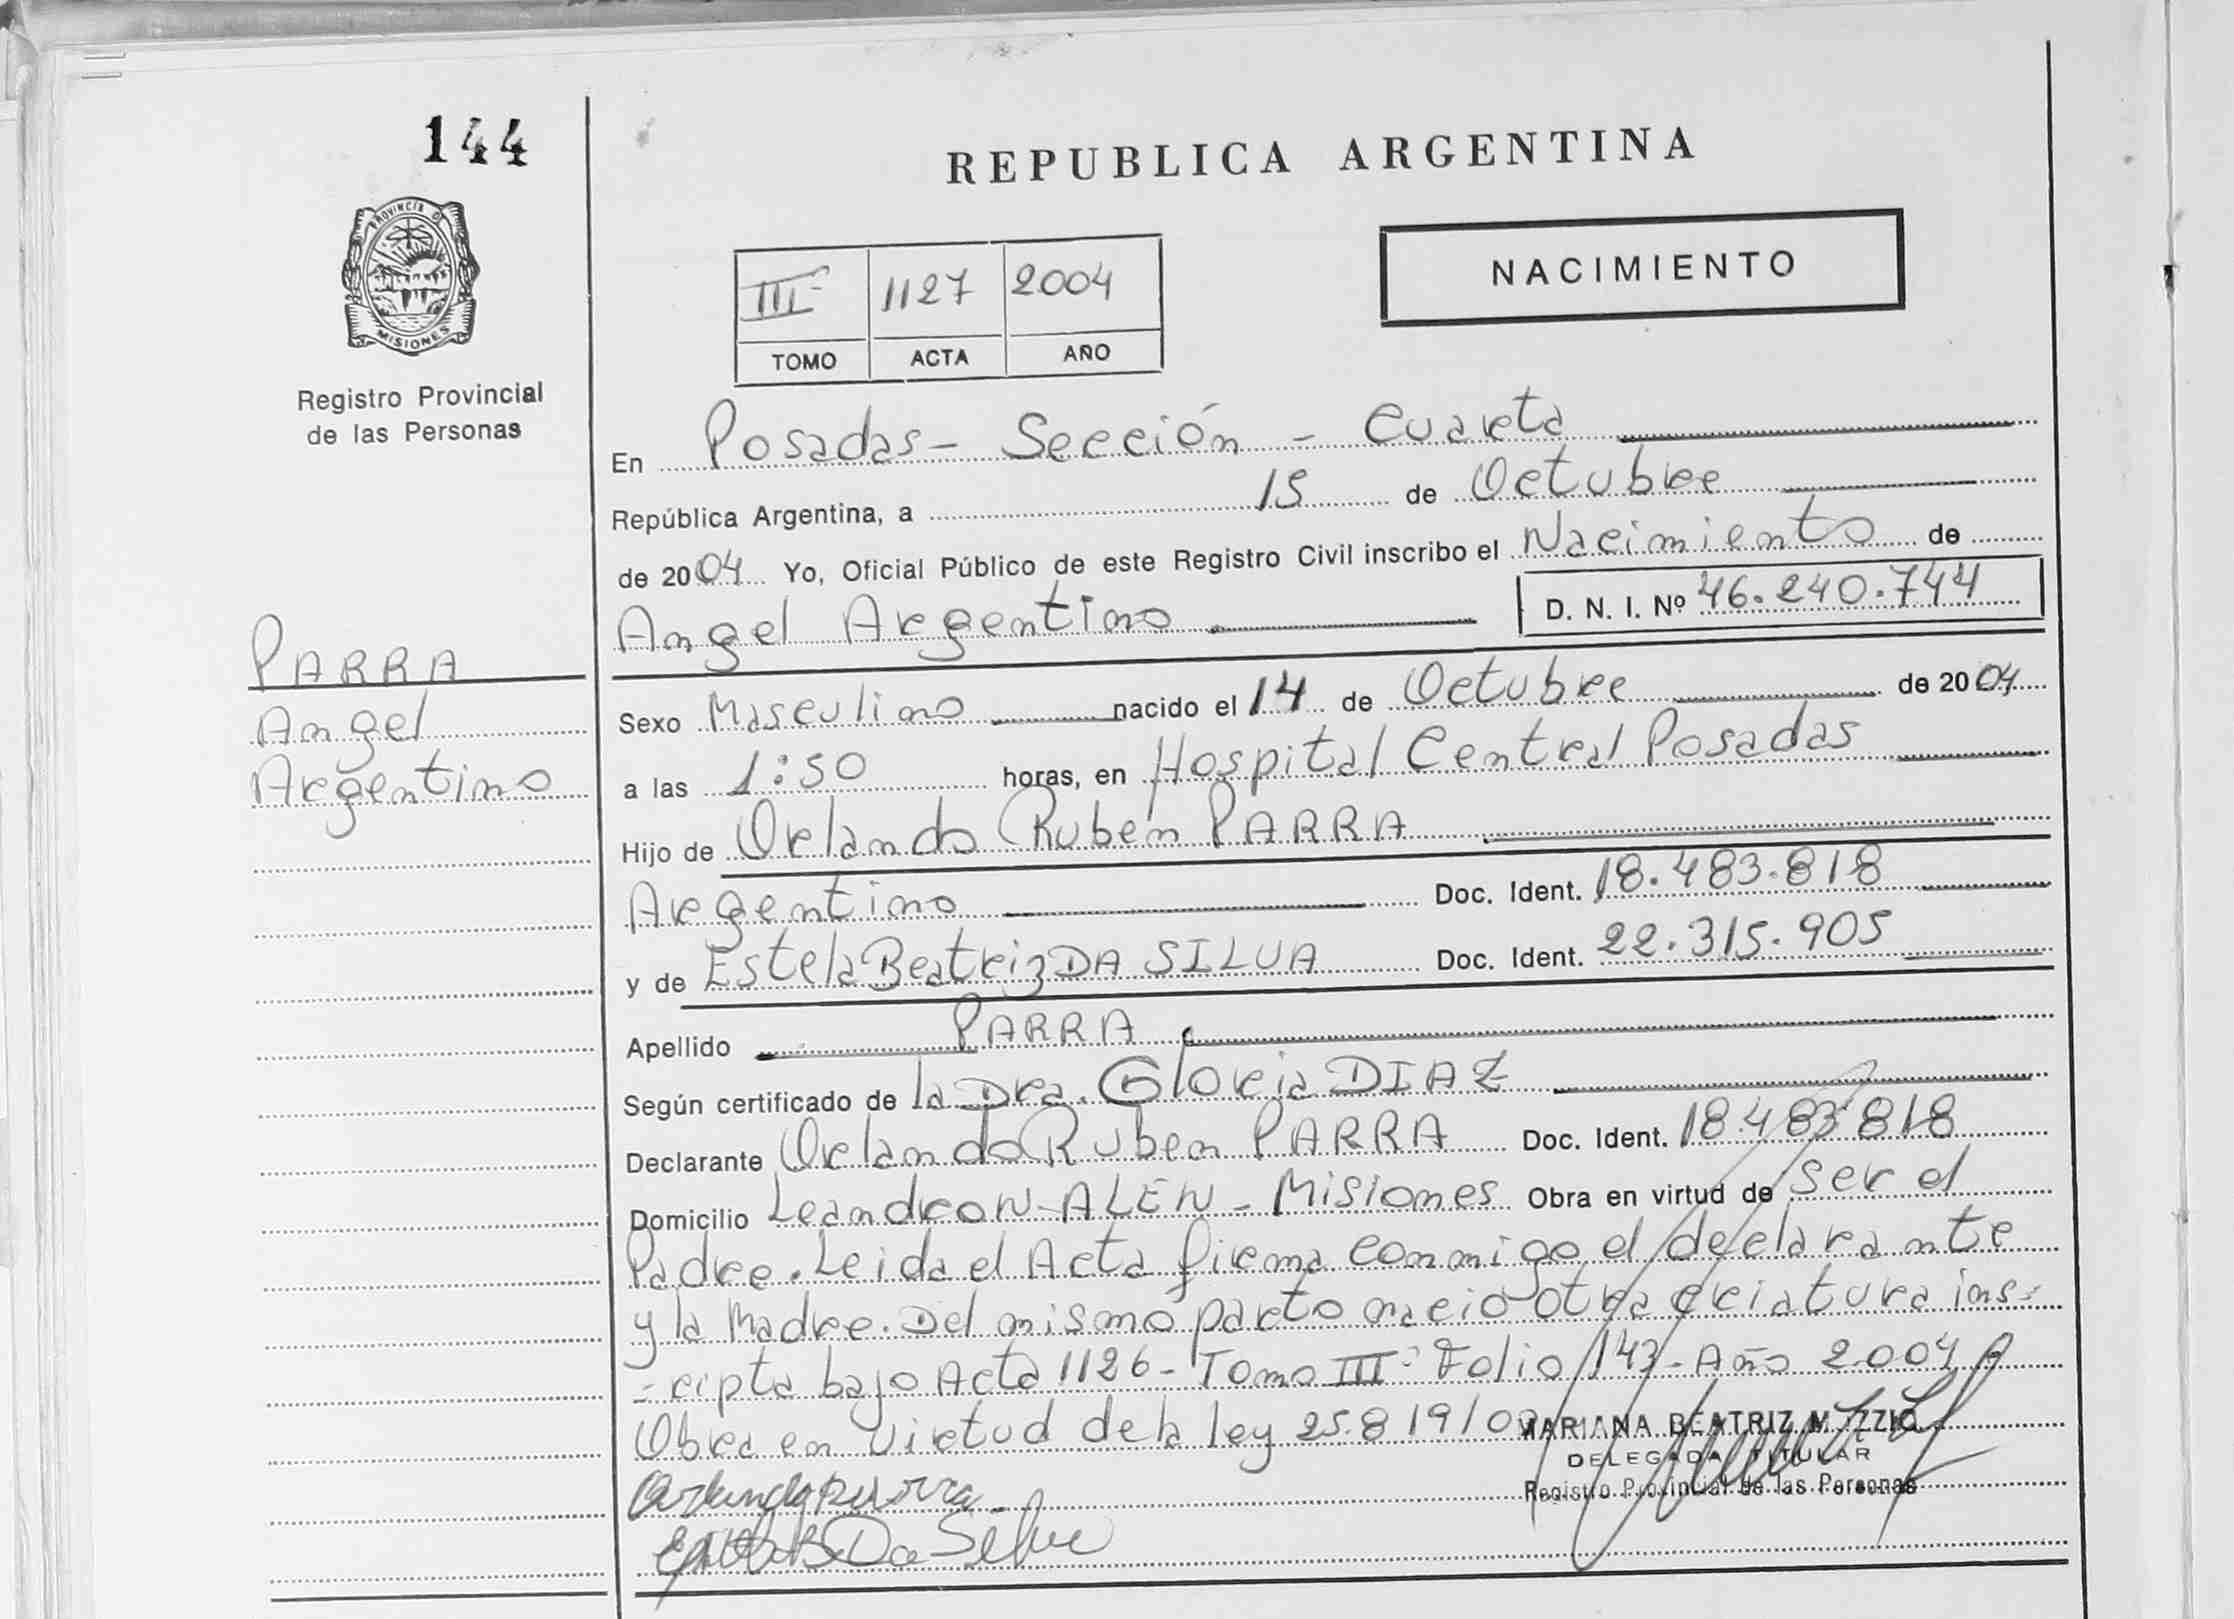 144
PROVINCIA D
MISIONES
Registro Provincial
de las Personas
REPUBLICA ARGENTINA
NACIMIENTO
III 1127 2004
TOMO ACTA AÑO
En Posadas - Sección - Cuarta
República Argentina, a 15 de Octubre
de 2004 Yo, Oficial Público de este Registro Civil inscribo el Nacimiento de
Angel Argentino D. N. I. Nº 46.240.744
PARRA
Angel
Argentino
Sexo Masculino nacido el 14 de Octubre de 2004
a las 1:50 horas, en Hospital Central Posadas
Hijo de Orlando Ruben PARRA
Argentino Doc. Ident. 18.483.818
y de Estela Beatriz DA SILVA Doc. Ident. 22.315.905
Apellido PARRA
Según certificado de la Dra. Gloria DIAZ
Declarante Orlando Ruben PARRA Doc. Ident. 18.483.818
Domicilio Leandro N. ALEN - Misiones Obra en virtud de ser el
Padre. Leida el Acta firma conmigo el declarante
y la Madre. Del mismo parto nacio otra criatura ins-
-cripta bajo Acta 1126 - Tomo III - Folio 143 - Año 2004
Obra en virtud de la ley 25.819/0
MARIANA BEATRIZ
DELEGADA TITULAR
Registro Provincial de las Personas